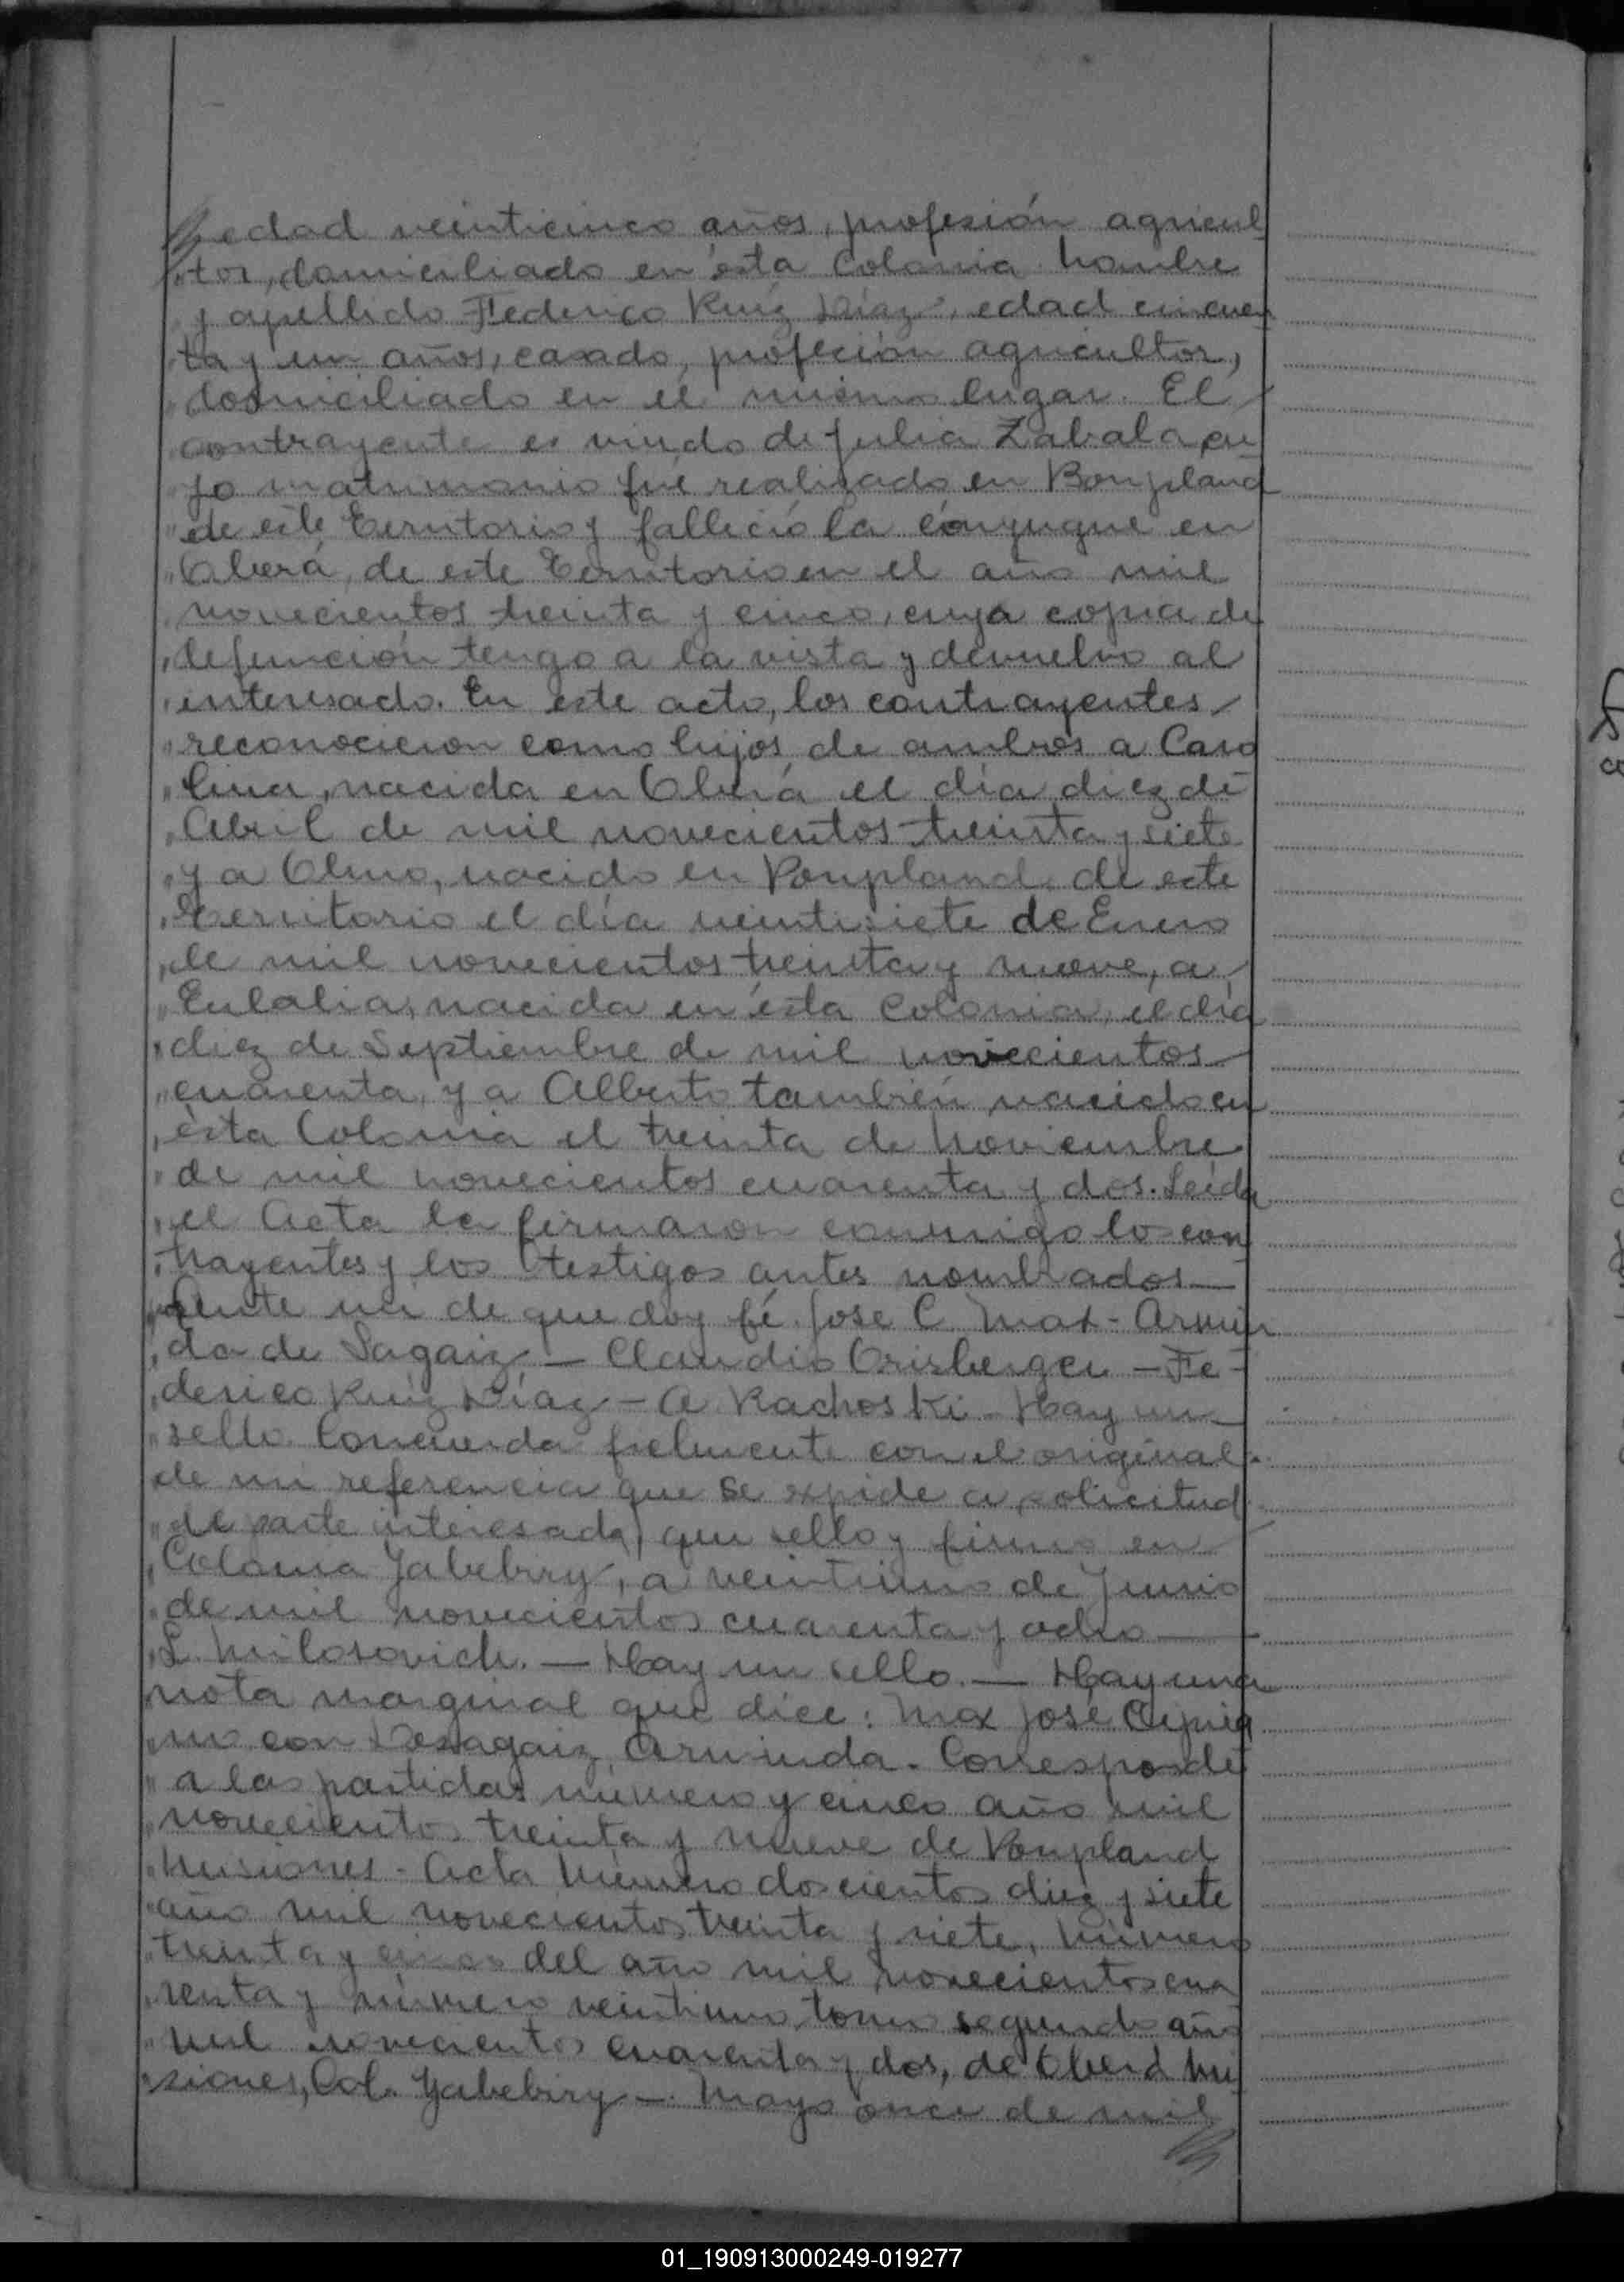 edad veinticinco años, profesión agricul
tor, domiciliado en ésta Colonia hombre
y apellido Federico Ruiz Díaz, edad cincuen
ta y un años, casado, profeción agricultor,
domiciliado en el mismo lugar. El
contrayente es viudo de Julia Zabala cu
yo matrimonio fué realizado en Bonpland
de este Territorio y falleció la cónyugue en
Oberá, de este Territorio en el año mil
novecientos treinta y cinco, cuya copia de
defunción tengo a la vista y devuelvo al
interesado. En este acto, los contrayentes
reconocieron como hijos de ambos a Caro
lina, nacida en Oberá el día diez de
Abril de mil novecientos treinta y siete
y a Olmo, nacido en Bonpland de este
Territorio el día veintisiete de Enero
de mil novecientos treinta y nueve, a
Eulalia, nacida en ésta Colonia, el día
diez de Septiembre de mil novecientos
cuarenta, y a Alberto también nacido en
ésta Colonia el treinta de Noviembre
de mil novecientos cuarenta y dos. Leída
el Acta la firmaron conmigo los con
trayentes y los testigos antes nombrados
ante mi de que doy fé. Jose C. Max - Armin
da de Sagaiz - Claudio - Fe
derico Ruiz Díaz - A Rachoski - Hay un
sello. Concuerda fielmente con el original
de mi referencia que se expide a solicitud
de parte interesada, que sello y firmo en
Colonia Yabebiry, a veintiuno de Junio
de mil novecientos cuarenta y ocho
L. Milosovich. - Hay un sello. - Hay una
nota marginal que dice: Max José Cipria
no con Desagaiz Arminda. Corresponde
a las partidas número y cinco año mil
novecientos treinta y nueve de Bonpland
Misiones - Acta Número doscientos diez y siete
año mil novecientos treinta y siete, Número
treinta y cinco del año mil novecientos cua
renta y número veintiuno tomo segundo año
mil novecientos cuarenta y dos, de Oberá Mi
siones, Col. Yabebiry - Mayo once de mil
01_190913000249-019277